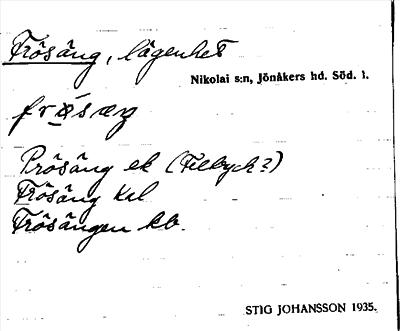 Frösäng, lägenhet
Nikolai s:n, Jönåkers hd. Söd. l.
frø̀sæŋ
Prösäng ek (Feltryck?)
Frösäng kal
Frösängen kb.
STIG JOHANSSON 1935.